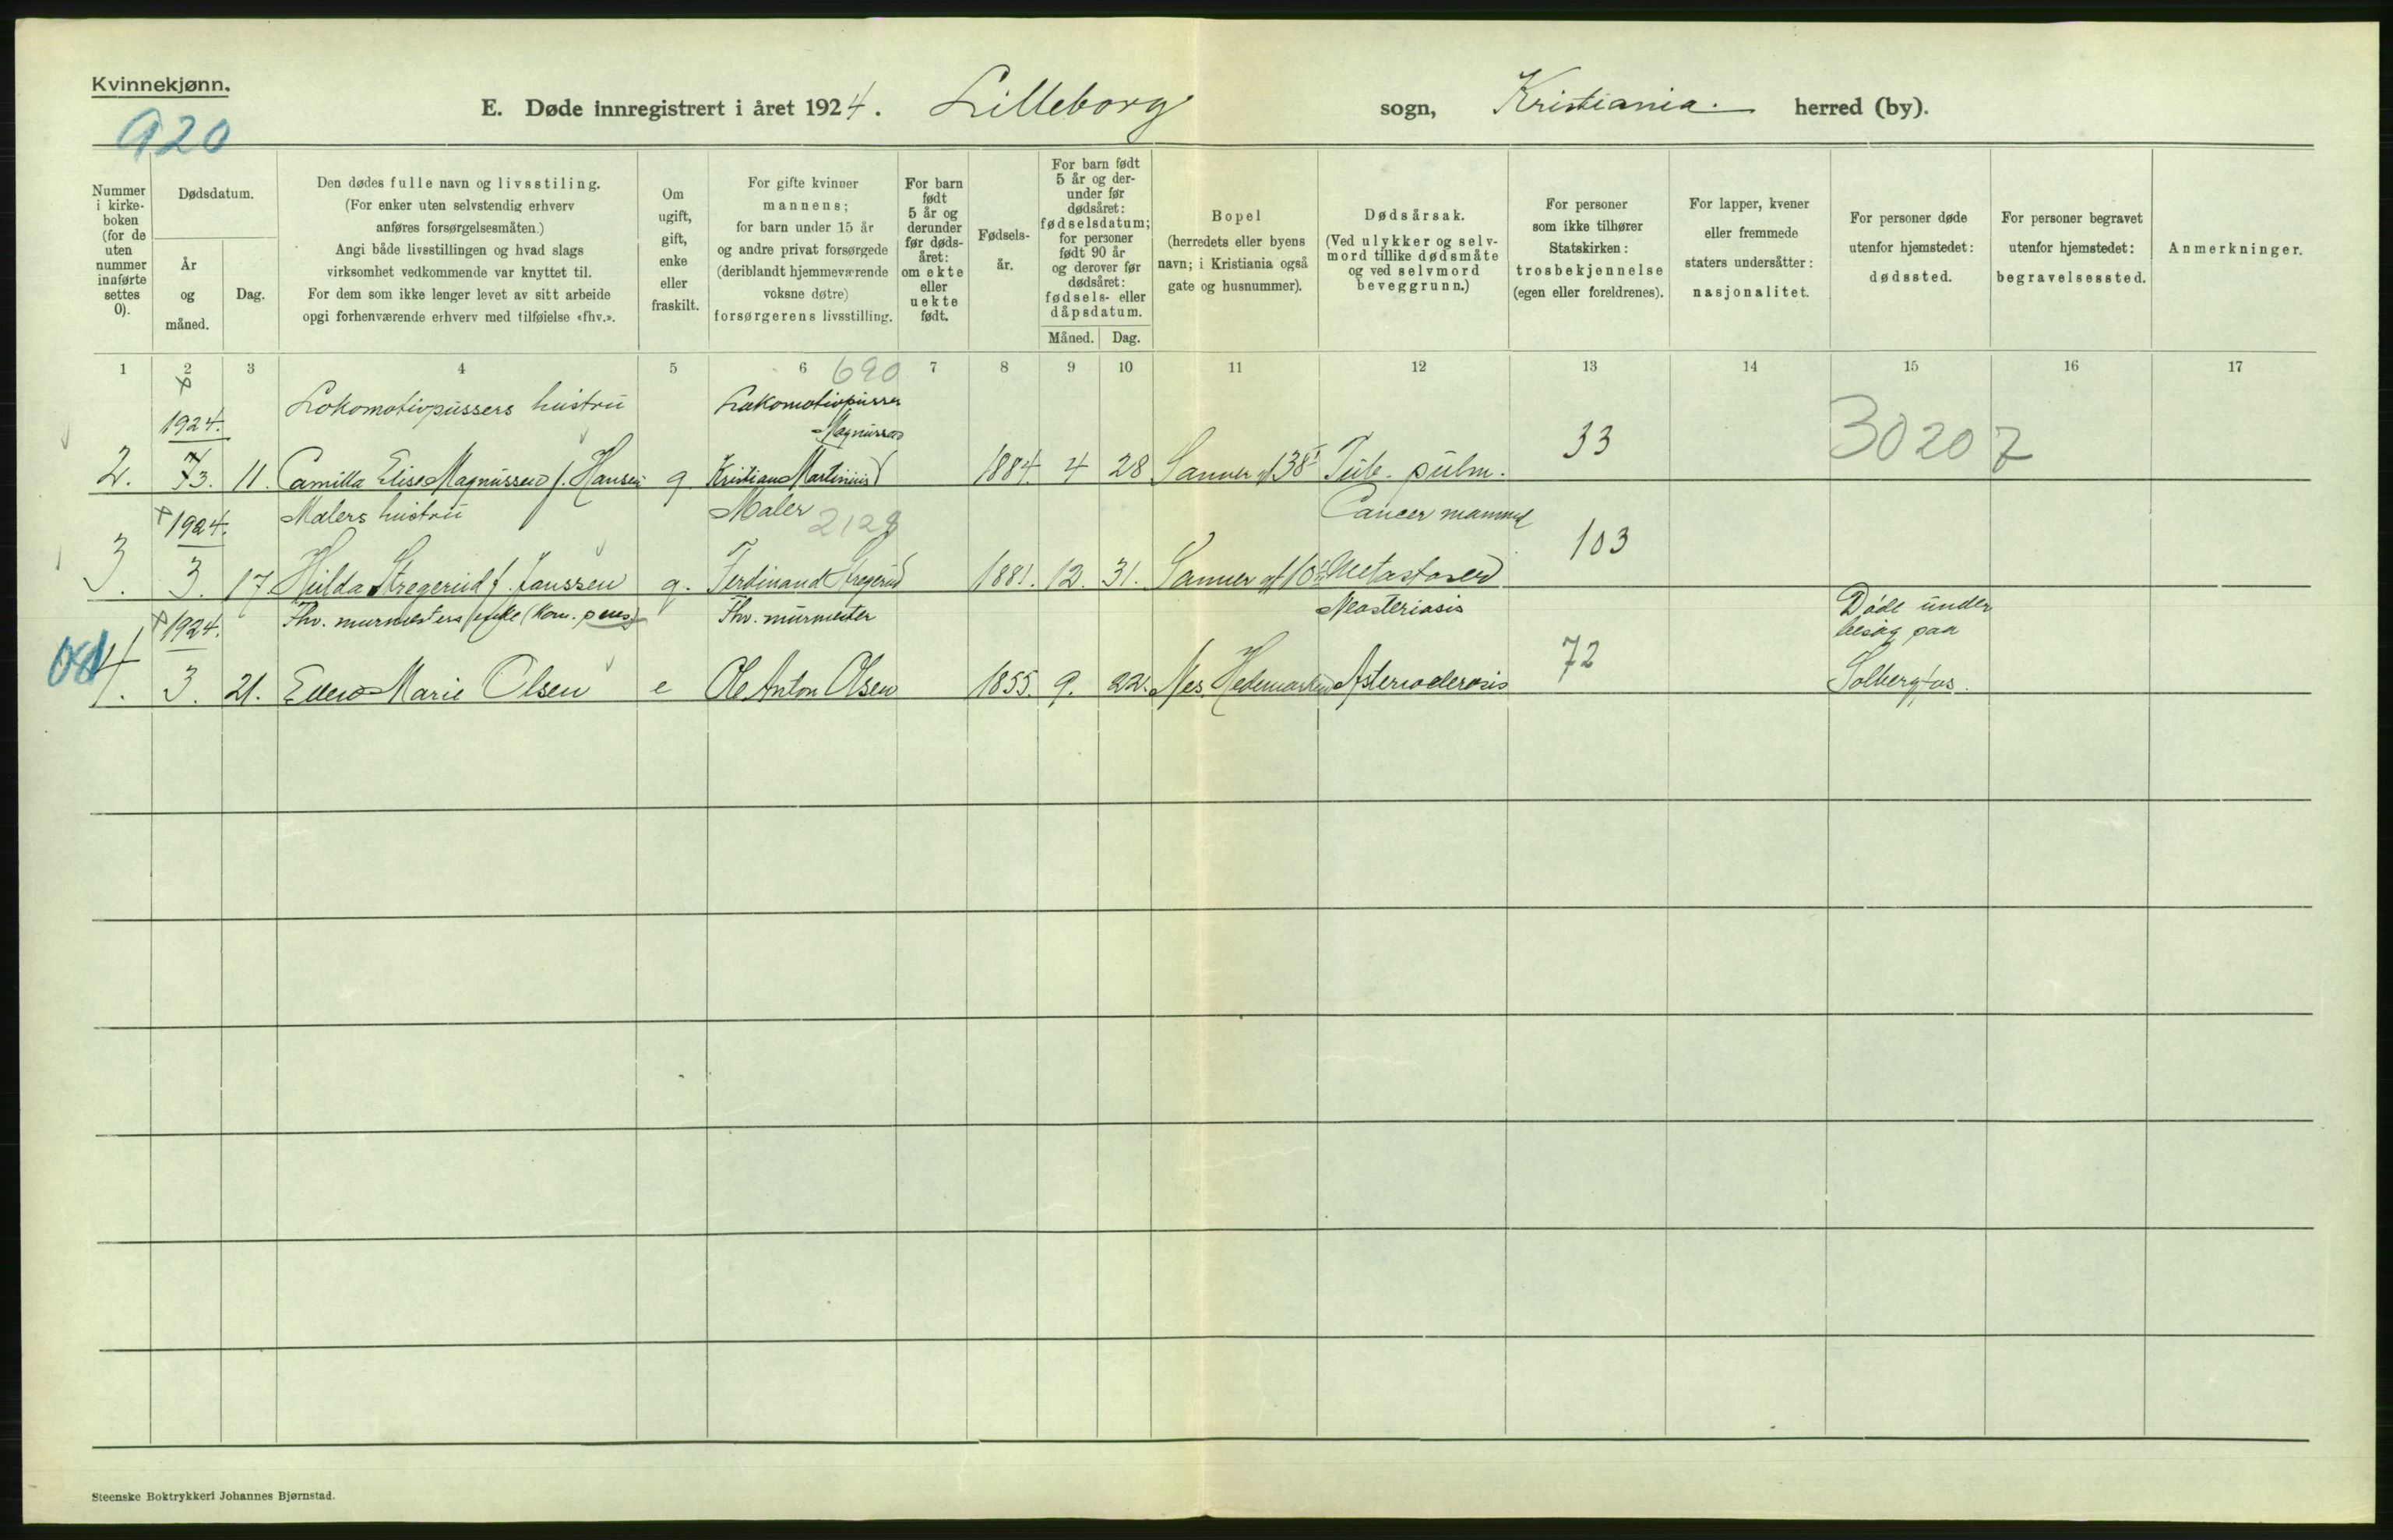 Kvinnekjønn.
920
E. Døde innregistrert i året 1924. Lilleborg sogn, Kristiania. herred (by).
Nummer i kirke-boken (for de uten nummer innførte settes 0).
Dødsdatum.
År og måned.
Dag.
Den dødes fulle navn og livsstiling.
(For enker uten selvstendig erhverv
anføres forsørgelsesmåten.)
Angi både livsstillingen og hvad slags
virksomhet vedkommende var knyttet til.
For dem som ikke lenger levet av sitt arbeide
opgi forhenværende erhverv med tilføielse «fhv.».
Om ugift, gift, enke eller fraskilt.
For gifte kvinner
mannens;
for barn under 15 år
og andre privat forsørgede
(deriblandt hjemmeværende
voksne døtre)
forsørgerens livsstilling.
For barn født 5 år og derunder før døds-året: om ekte eller uekte født.
Fødsels-år.
For barn født
5 år og der-
under før
dødsåret:
fødselsdatum;
for personer
født 90 år
og derover før
dødsåret:
fødsels- eller
dåpsdatum.
Måned. Dag.
Bopel
(herredets eller byens
navn; i Kristiania også
gate og husnummer).
Dødsårsak.
(Ved ulykker og selv-
mord tillike dødsmåte
og ved selvmord
beveggrunn.)
For personer
som ikke tilhører
Statskirken:
trosbekjennelse
(egen eller foreldrenes).
For lapper, kvener
eller fremmede
staters undersåtter:
nasjonalitet.
For personer døde
utenfor hjemstedet:
dødssted.
For personer begravet
utenfor hjemstedet:
begravelsessted.
Anmerkninger.
1 2 3 4 5 6 7 8 9 10 11 12 13 14 15 16 17
690
Lokomotivpussers hustru Lokomotivpusser
1924. Magnussen 33 30207
2. 3. 11. Camilla Elise Magnussen f. Hansen g. Kristian Martinius 1884. 4 28 Sanner gt 38 Tub. pulm.
1924. Malers hustru Maler 2128 Cancer mammæ
103
3. 3. 17 Hulda Stregerud f. Janssen g. Ferdinand Stregerud 1881. 12. 31. Sanner gt 10 Metastaser
1924. Fhv. murmesters enke (Kom. pens) Fhv. murmester Døde under
besøg paa
72
4. 3. 21. Ellen Marie Olsen e Ole Anton Olsen 1855. 9. 22. Nes, Hedemarken Solbergfos.
Steenske Boktrykkeri Johannes Bjørnstad.